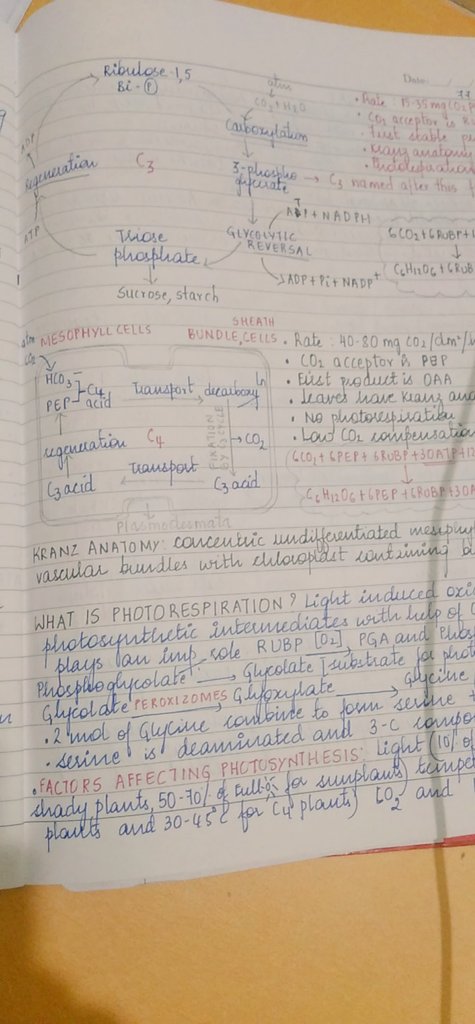 Date:
Ribulose-1,5
Bi-P
atm
CO2+H2O
Carboxylation
• Rate: 15-35 mg CO2/
• CO2 acceptor is
• First stable
• Kranz anatomy
• Photorespiration
ADP
Regeneration
C3
3-phospho
glycerate → C3 named after this
ATP
ATP + NADPH
GLYCOLYTIC
REVERSAL
Triose
phosphate
ADP+Pi+NADP+
6CO2+6RUBP+
C6H12O6+6RUB
Sucrose, starch
atm
CO2
MESOPHYLL CELLS
BUNDLE SHEATH CELLS
HCO3-
PEP
C4
acid
Transport
decarboxy
ln
regeneration
C4
FIXATION
BY C3 CYCLE
→CO2
C3 acid
Transport
C3 acid
Plasmodesmata
• Rate: 40-80 mg CO2/dm2/
• CO2 acceptor is PEP
• First product is OAA
• Leaves have Kranz ana
• No photorespiration
• Low CO2 compensation
6CO2+6PEP+6RUBP+30ATP+12
C6H12O6+6PEP+6RUBP+30A
KRANZ ANATOMY: concentric undifferentiated mesophy
vascular bundles with chloroplast containing bu
WHAT IS PHOTORESPIRATION? Light induced oxi
photosynthetic intermediates with help of
plays an imp. role RUBP [O2]→ PGA and Phos
Phosphoglycolate → Glycolate [substrate for phot
Glycolate PEROXIZOMES→ Glyoxylate → Glycine
• 2 mol of Glycine combine to form serine
• serine is deaminated and 3-C compo
• FACTORS AFFECTING PHOTOSYNTHESIS: Light (10% of
shady plants, 50-70% of full for sunplants) tempe
plants and 30-45°C for C4 plants) CO2 and